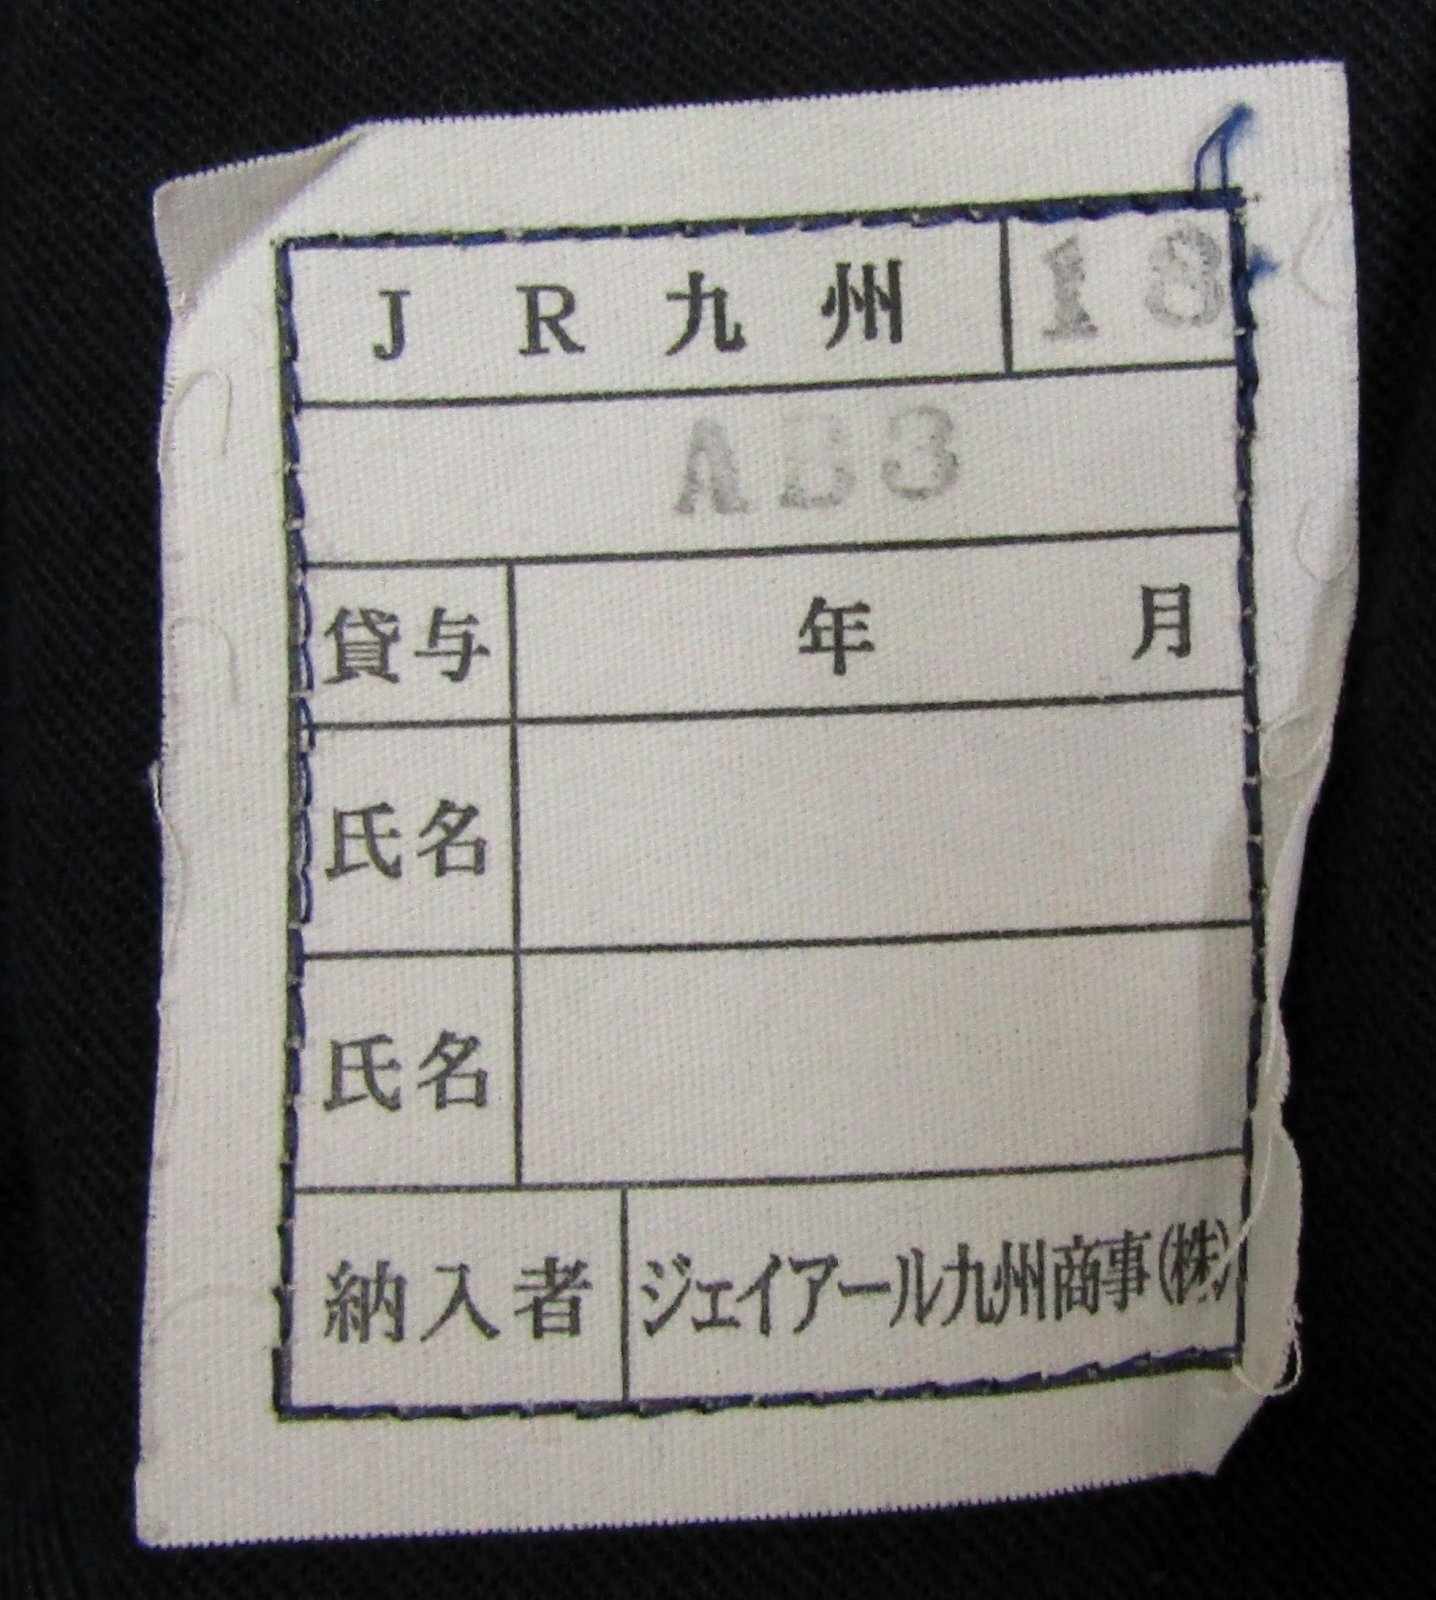 JR九州 18
AB3
貸与 年 月
氏名
氏名
納入者 ジェイアール九州商事(株)